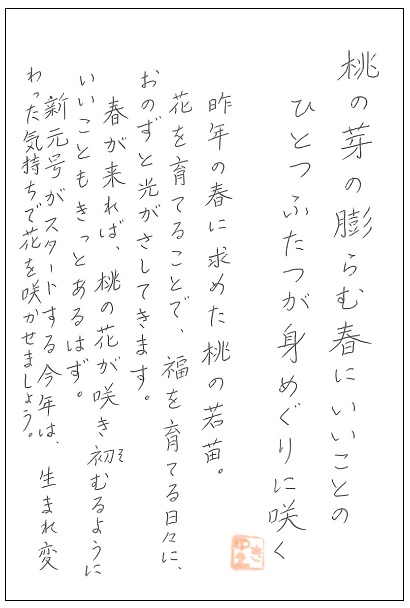 桃の芽の膨らむ春にいいことの
ひとつふたつが身めぐりに咲く
昨年の春に求めた桃の若苗。
花を育てることで、福を育てる日々に、
おのずと光がさしてきます。
春が来れば、桃の花が咲き初むるように
そ
いいこともきっとあるはず。
新元号がスタートする今年は、生まれ変
わった気持ちで花を咲かせましょう。